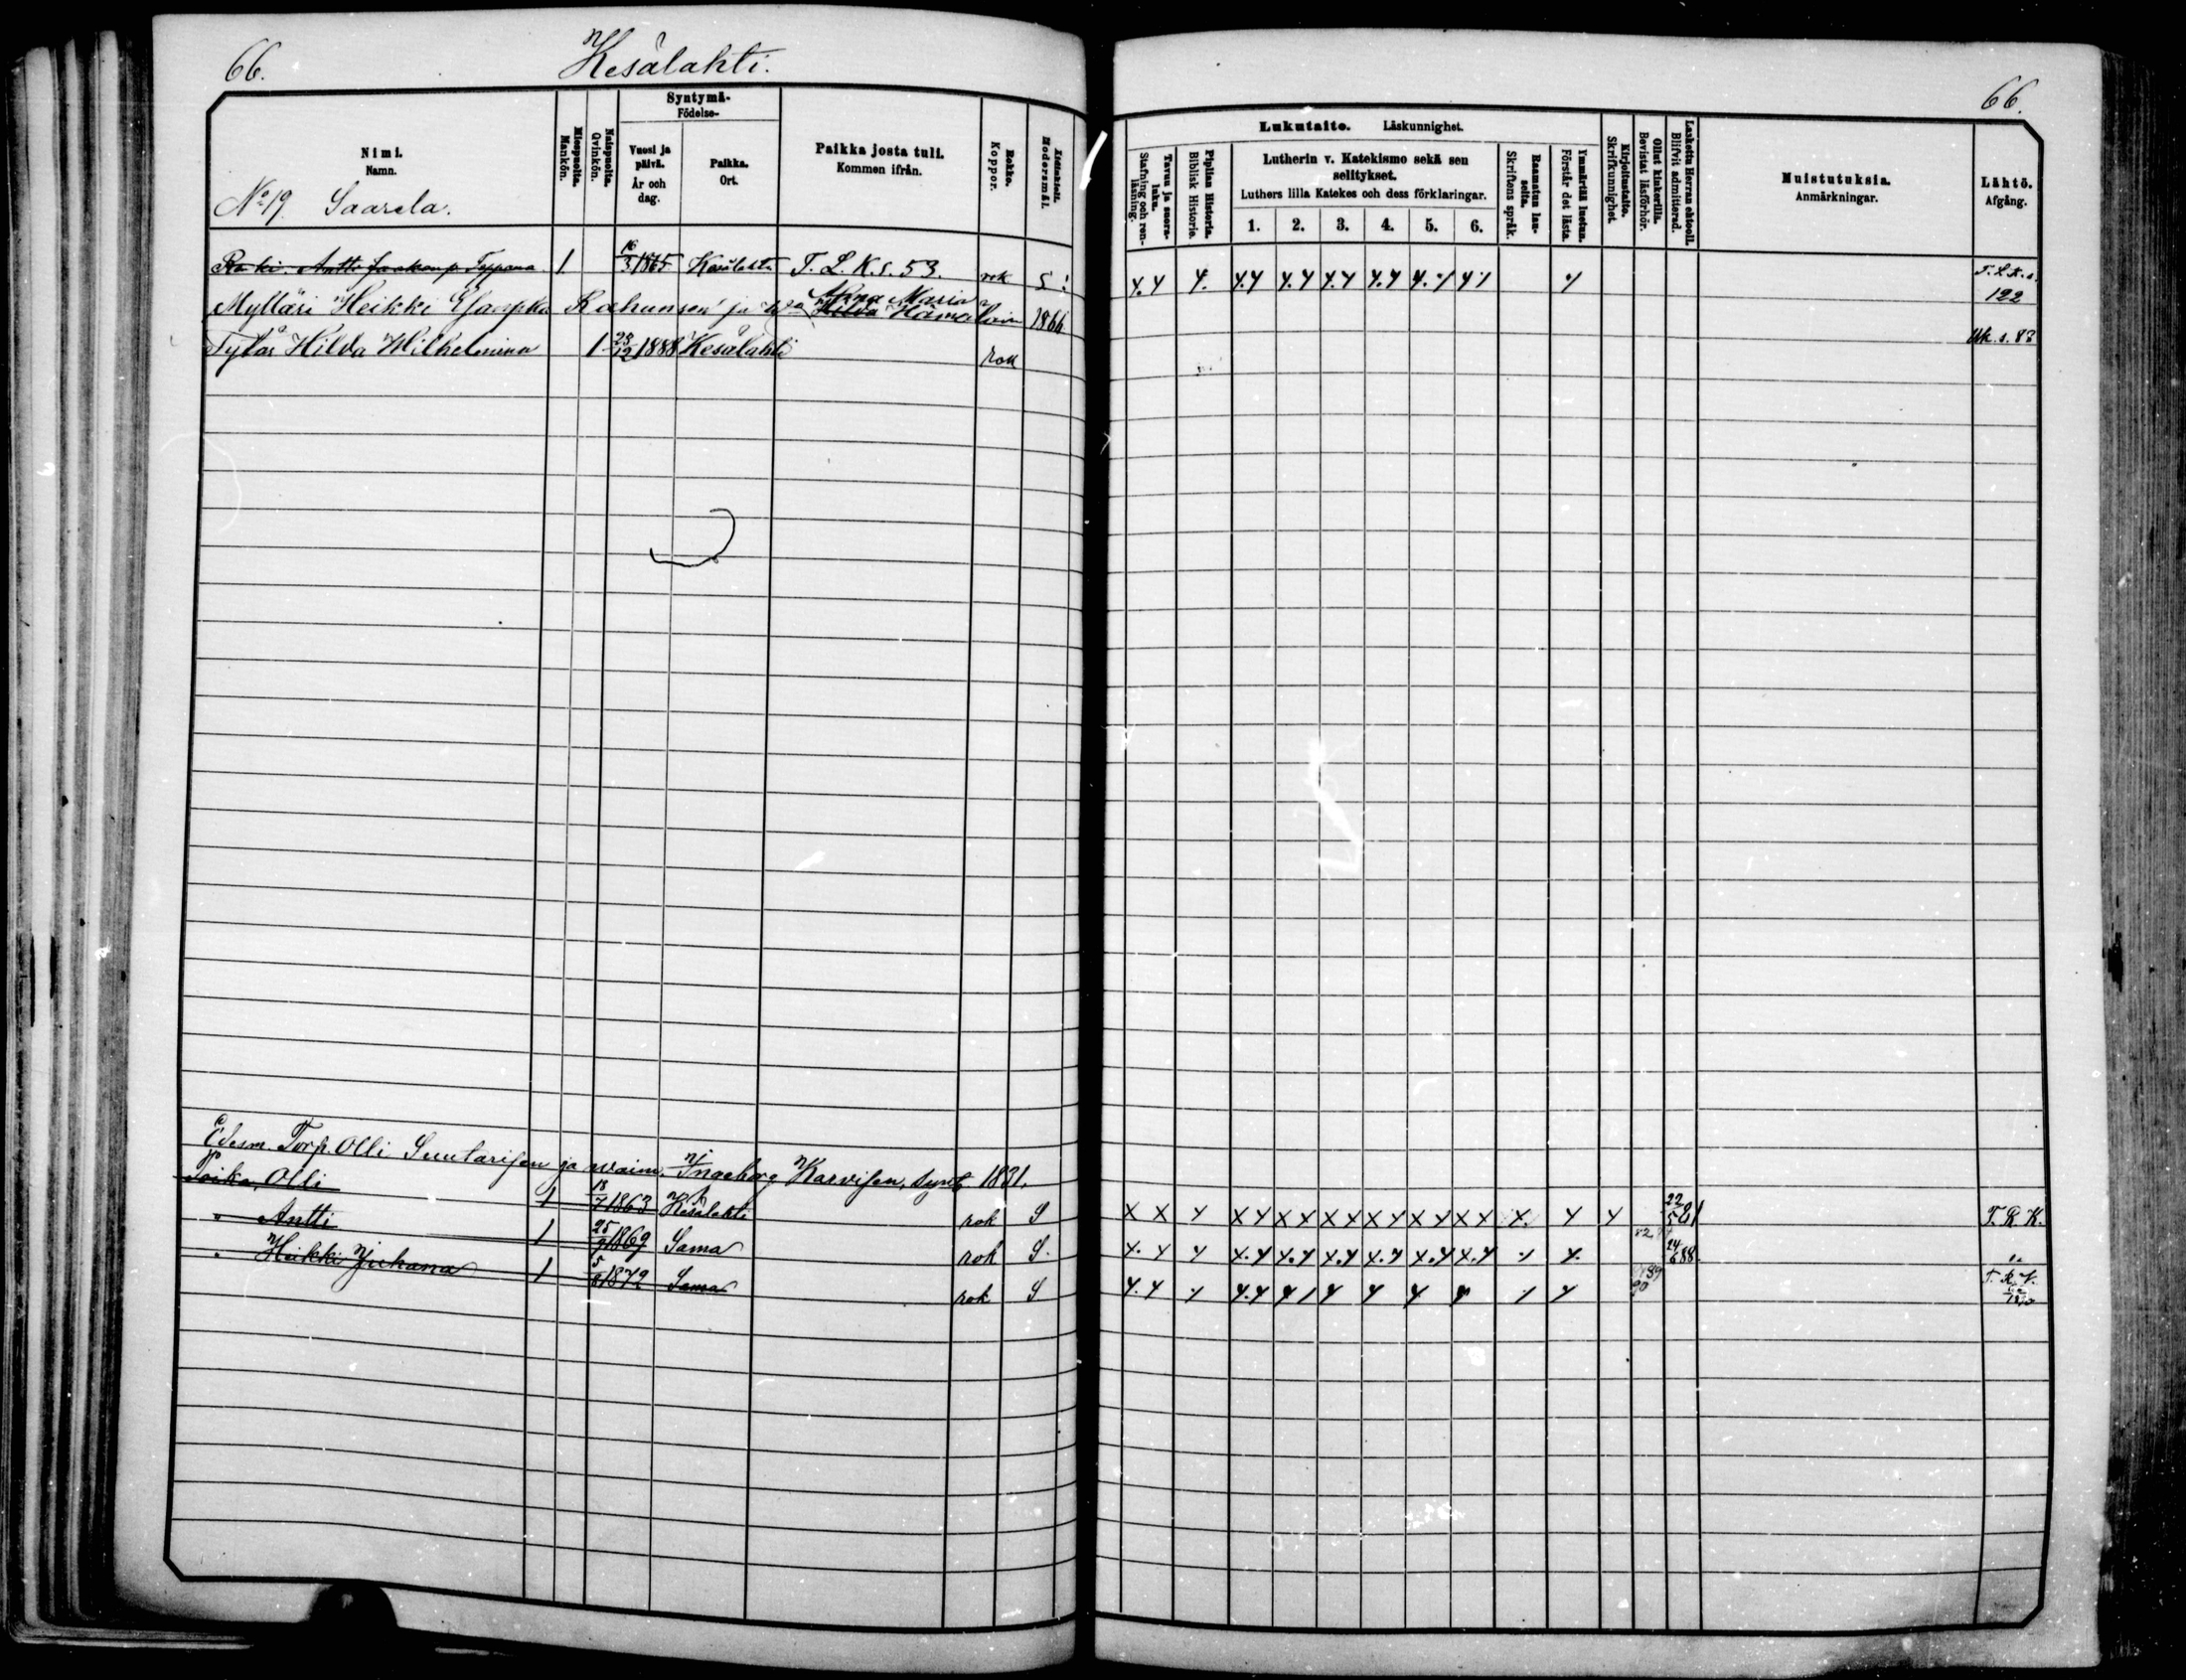 66.
Kesälahti.
66.
Nimi.
Namn.
Miespuolta.
Mankön.
Naispuolta.
Qvinkön.
Syntymä-
Födelse-
Vuosi ja päivä.
År och dag.
Paikka.
Ort.
Paikka josta tuli.
Kommen ifrån.
Rokko.
Koppor.
Modersmål.
Lukutaito. Läskunnighet.
Tavuu ja suora-luku.
Stafning och ren-läsning.
Piplian Historia.
Biblisk Historie.
Lutherin v. Katekismo sekä sen selitykset.
Luthers lilla Katekes och dess förklaringar.
1. 2. 3. 4. 5. 6.
Raamatun lau-seita.
Skriftens språk.
Ymmärtää luetun.
Förstår det lästa.
Kirjoitustaito.
Skrifkunnighet.
Ollut kinkerillä.
Bevistat läsförhör.
Laskettu Herran ehtooll.
Blifvit admitterad.
Muistutuksia.
Anmärkningar.
Lähtö.
Afgång.
No 19. Saarela.
Antti Jaakonp. 1 16/3 1865 Kesälahti T. L. K. s. 53. rok S. T. L. K. s. 122
Mylläri Heikki Rahunsen ja Anna Maria Hilda 1866
Tytär Hilda Wilhelmina 1 23/12 1888 Kesälahti rok s. 83
Edesm. Torp. Olli Suutarisen ja waim. Ingeborg Karvisen, synt. 1831.
Poika, Olli 1 18/7 1863 Kesälahti rok S 22/5 81 T. R. K.
" Antti 1 25/9 1869 Sama rok S. 24/6 88. "
" Heikki Juhana 1 5/8 1872 Sama rok S 89 90 T. R. K.